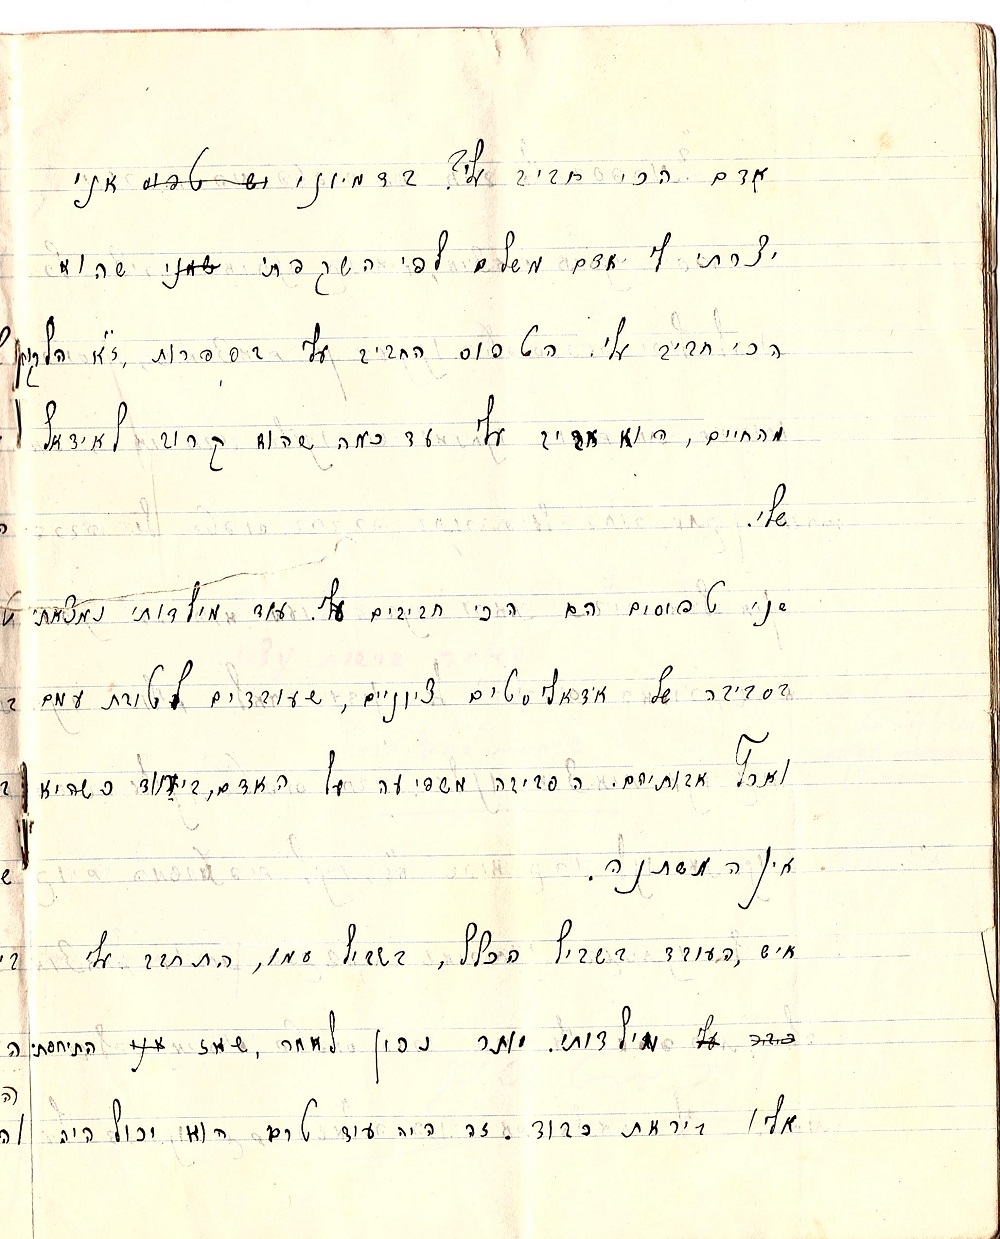 אדם הכי חביב עלי? בדמיוני יש טפוס אני
יצרתי לי אדם משלם לפי השקפתי שאני שהוא
הכי חביב עלי. הטפוס החביב עלי בספרות, ז"א הלקוח
מהחיים, הוא חביב עלי עד כמה שהוא קרוב לאידאל
שלי.
שני טפוסים הם הכי חביבים עלי. עוד מילדותי נמצאתי
בסביבה של אידאליסטים ציוניים, שעובדים לטובת עמם
וארץ אבותיהם. הסביבה משפיעה על האדם, ביחוד כשהיא
אינה משתנה.
איש, העובד בשביל הכלל, בשביל עמו, התחבב עלי
כבר עלי מילדותי. יותר נכון לאמר, שאז אני התיחסתי
אליו ביראת כבוד. זה היה עוד טרם הוא יכול היה